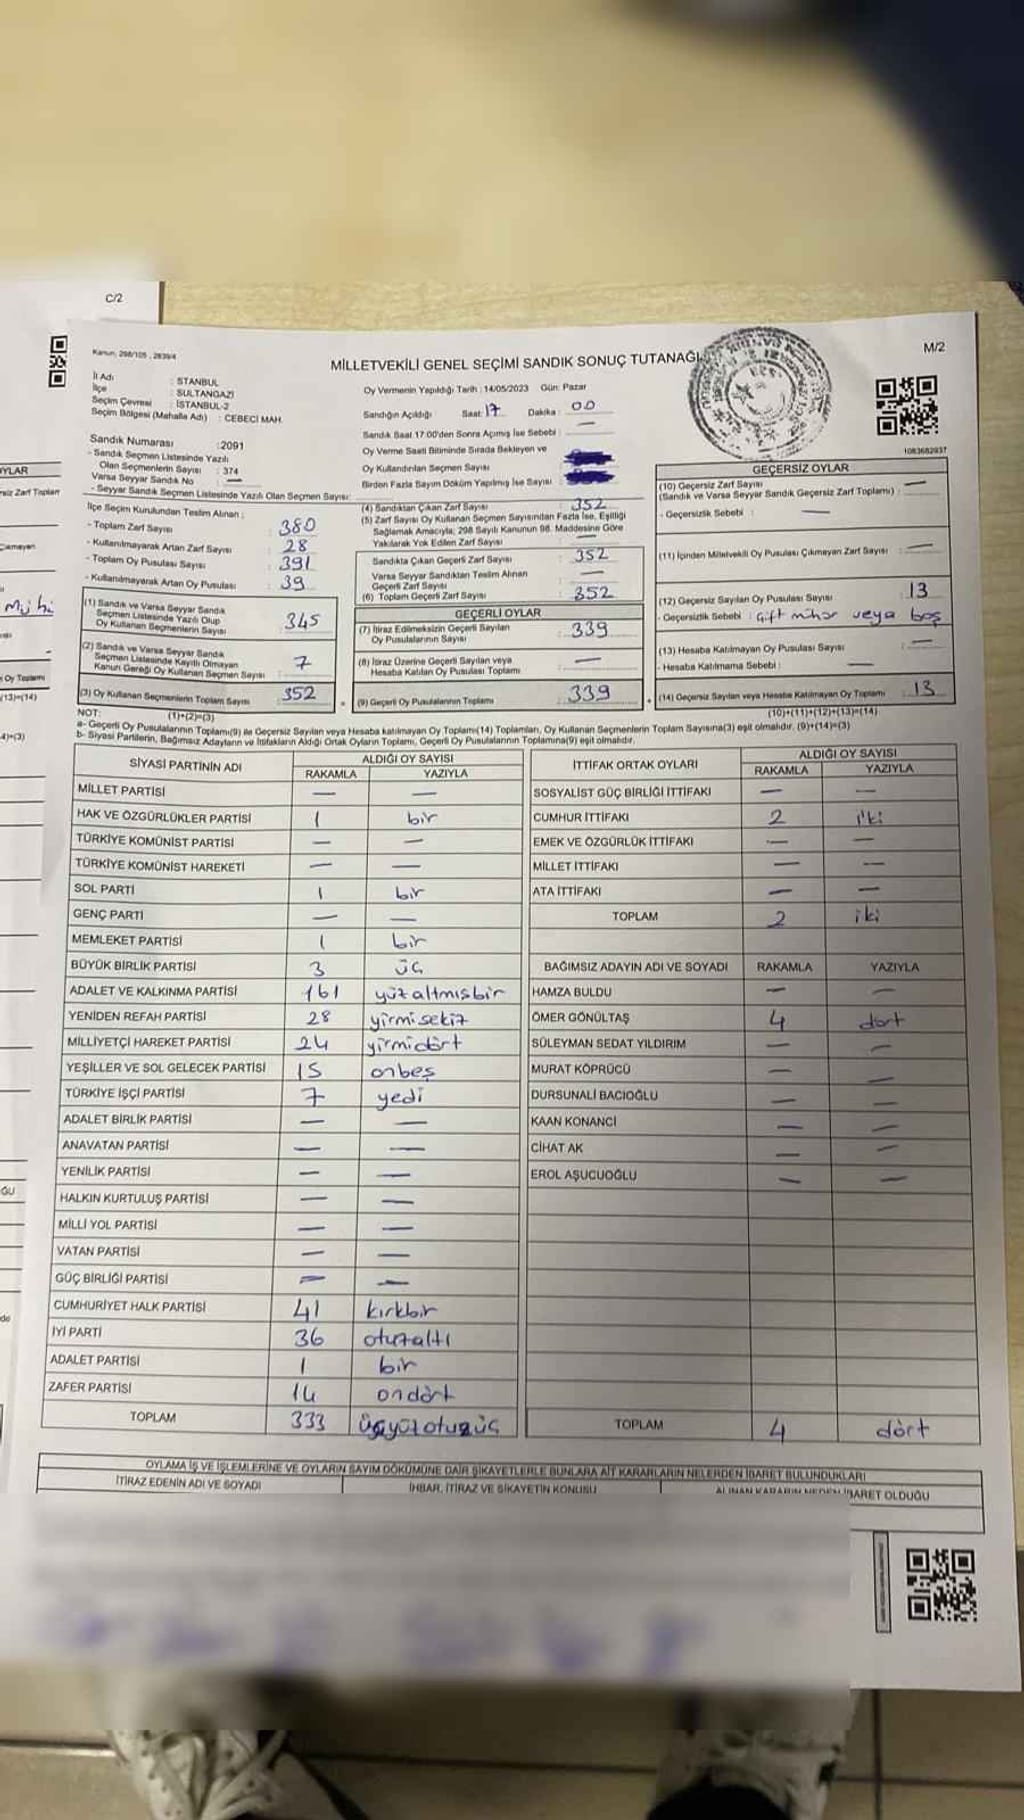 C/2
Kanun, 298/105 , 2839/4
MİLLETVEKİLİ GENEL SEÇİMİ SANDIK SONUÇ TUTANAĞI
M/2
İl Adı : STANBUL
İlçe : SULTANGAZİ
Seçim Çevresi : İSTANBUL-2
Seçim Bölgesi (Mahalle Adı) : CEBECİ MAH.
Oy Vermenin Yapıldığı Tarih : 14/05/2023 Gün: Pazar
Sandığın Açıldığı Saat: 17 Dakika : 00
Sandık Saat 17:00'den Sonra Açımış İse Sebebi : —
Oy Verme Saati Bitiminde Sırada Bekleyen ve
Oy Kullandırılan Seçmen Sayısı
Birden Fazla Sayım Döküm Yapılmış İse Sayısı :
1083682937
Sandık Numarası : 2091
- Sandık Seçmen Listesinde Yazılı
Olan Seçmenlerin Sayısı : 374
Varsa Seyyar Sandık No : —
- Seyyar Sandık Seçmen Listesinde Yazılı Olan Seçmen Sayısı:
İlçe Seçim Kurulundan Teslim Alınan ;
- Toplam Zarf Sayısı : 380
- Kullanılmayarak Artan Zarf Sayısı : 28
- Toplam Oy Pusulası Sayısı : 391
- Kullanılmayarak Artan Oy Pusulası : 39
(1) Sandık ve Varsa Seyyar Sandık
Seçmen Listesinde Yazılı Olup
Oy Kullanan Seçmenlerin Sayısı : 345
(2) Sandık ve Varsa Seyyar Sandık
Seçmen Listesinde Kayıtlı Olmayan
Kanun Gereği Oy Kullanan Seçmen Sayısı : 7
(3) Oy Kullanan Seçmenlerin Toplam Sayısı : 352
(1)+(2)=(3)
(4) Sandıktan Çıkan Zarf Sayısı : 352
(5) Zarf Sayısı Oy Kullanan Seçmen Sayısından Fazla İse, Eşitliği
Sağlamak Amacıyla; 298 Sayılı Kanunun 98. Maddesine Göre
Yakılarak Yok Edilen Zarf Sayısı : —
Sandıkta Çıkan Geçerli Zarf Sayısı : 352
Varsa Seyyar Sandıktan Teslim Alınan
Geçerli Zarf Sayısı : —
(6) Toplam Geçerli Zarf Sayısı : 352
GEÇERLİ OYLAR
(7) İtiraz Edilmeksizin Geçerli Sayılan
Oy Pusulalarının Sayısı : 339
(8) İtiraz Üzerine Geçerli Sayılan veya
Hesaba Katılan Oy Pusulası Toplamı : —
(9) Geçerli Oy Pusulalarının Toplamı : 339
GEÇERSİZ OYLAR
(10) Geçersiz Zarf Sayısı
(Sandık ve Varsa Seyyar Sandık Geçersiz Zarf Toplamı) : —
- Geçersizlik Sebebi : —
(11) İçinden Milletvekili Oy Pusulası Çıkmayan Zarf Sayısı : —
(12) Geçersiz Sayılan Oy Pusulası Sayısı : 13
- Geçersizlik Sebebi : Çift mühür veya boş
(13) Hesaba Katılmayan Oy Pusulası Sayısı : —
- Hesaba Katılmama Sebebi : —
(14) Geçersiz Sayılan veya Hesaba Katılmayan Oy Toplamı : 13
(10)+(11)+(12)+(13)=(14)
NOT:
a- Geçerli Oy Pusulalarının Toplamı(9) ile Geçersiz Sayılan veya Hesaba katılmayan Oy Toplamı(14) Toplamları, Oy Kullanan Seçmenlerin Toplam Sayısına(3) eşit olmalıdır. (9)+(14)=(3)
b- Siyasi Partilerin, Bağımsız Adayların ve İttifakların Aldığı Ortak Oyların Toplamı, Geçerli Oy Pusulalarının Toplamına(9) eşit olmalıdır.
SİYASİ PARTİNİN ADI ALDIĞI OY SAYISI
RAKAMLA YAZIYLA
MİLLET PARTİSİ — —
HAK VE ÖZGÜRLÜKLER PARTİSİ 1 bir
TÜRKİYE KOMÜNİST PARTİSİ — —
TÜRKİYE KOMÜNİST HAREKETİ — —
SOL PARTİ 1 bir
GENÇ PARTİ — —
MEMLEKET PARTİSİ 1 bir
BÜYÜK BİRLİK PARTİSİ 3 üç
ADALET VE KALKINMA PARTİSİ 161 yüzaltmışbir
YENİDEN REFAH PARTİSİ 28 yirmisekiz
MİLLİYETÇİ HAREKET PARTİSİ 24 yirmidört
YEŞİLLER VE SOL GELECEK PARTİSİ 15 onbeş
TÜRKİYE İŞÇİ PARTİSİ 7 yedi
ADALET BİRLİK PARTİSİ — —
ANAVATAN PARTİSİ — —
YENİLİK PARTİSİ — —
HALKIN KURTULUŞ PARTİSİ — —
MİLLİ YOL PARTİSİ — —
VATAN PARTİSİ — —
GÜÇ BİRLİĞİ PARTİSİ — —
CUMHURİYET HALK PARTİSİ 41 kırkbir
İYİ PARTİ 36 otuzaltı
ADALET PARTİSİ 1 bir
ZAFER PARTİSİ 14 ondört
TOPLAM 333 üçyüzotuzüç
İTTİFAK ORTAK OYLARI ALDIĞI OY SAYISI
RAKAMLA YAZIYLA
SOSYALİST GÜÇ BİRLİĞİ İTTİFAKI — —
CUMHUR İTTİFAKI 2 iki
EMEK VE ÖZGÜRLÜK İTTİFAKI — —
MİLLET İTTİFAKI — —
ATA İTTİFAKI — —
TOPLAM 2 iki
BAĞIMSIZ ADAYIN ADI VE SOYADI RAKAMLA YAZIYLA
HAMZA BULDU — —
ÖMER GÖNÜLTAŞ 4 dört
SÜLEYMAN SEDAT YILDIRIM — —
MURAT KÖPRÜCÜ — —
DURSUNALİ BACIOĞLU — —
KAAN KONANCİ — —
CİHAT AK — —
EROL AŞUCUOĞLU — —
TOPLAM 4 dört
OYLAMA İŞ VE İŞLEMLERİNE VE OYLARIN SAYIM DÖKÜMÜNE DAİR ŞİKAYETLERLE BUNLARA AİT KARARLARIN NELERDEN İBARET BULUNDUKLARI
İTİRAZ EDENİN ADI VE SOYADI
İHBAR, İTİRAZ VE ŞİKAYETİN KONUSU
ALINAN KARARIN NEDEN İBARET OLDUĞU